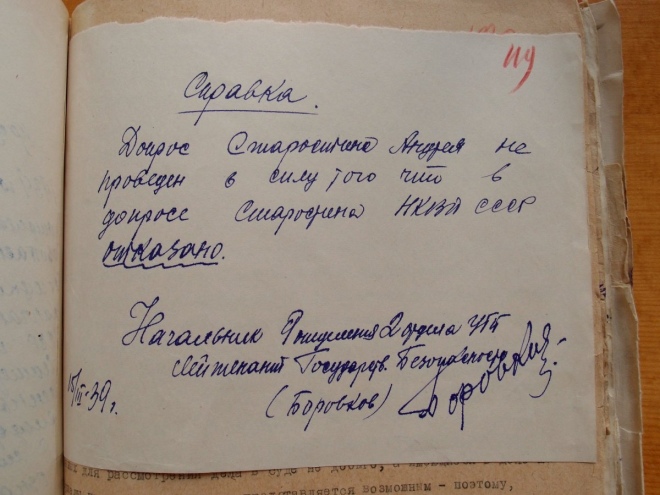 119
Справка.
Допрос Старостина Андрея не
проведен в силу того что в
допросе Старостина НКВД СССР
отказано.
Начальник 9 отделения 2 отдела
Лейтенант Государств. Безопасности
(Боровков) Боровков
15/III-39 г.
для рассмотрения дела в суде не добыто, а
представляется возможным - поэтому,